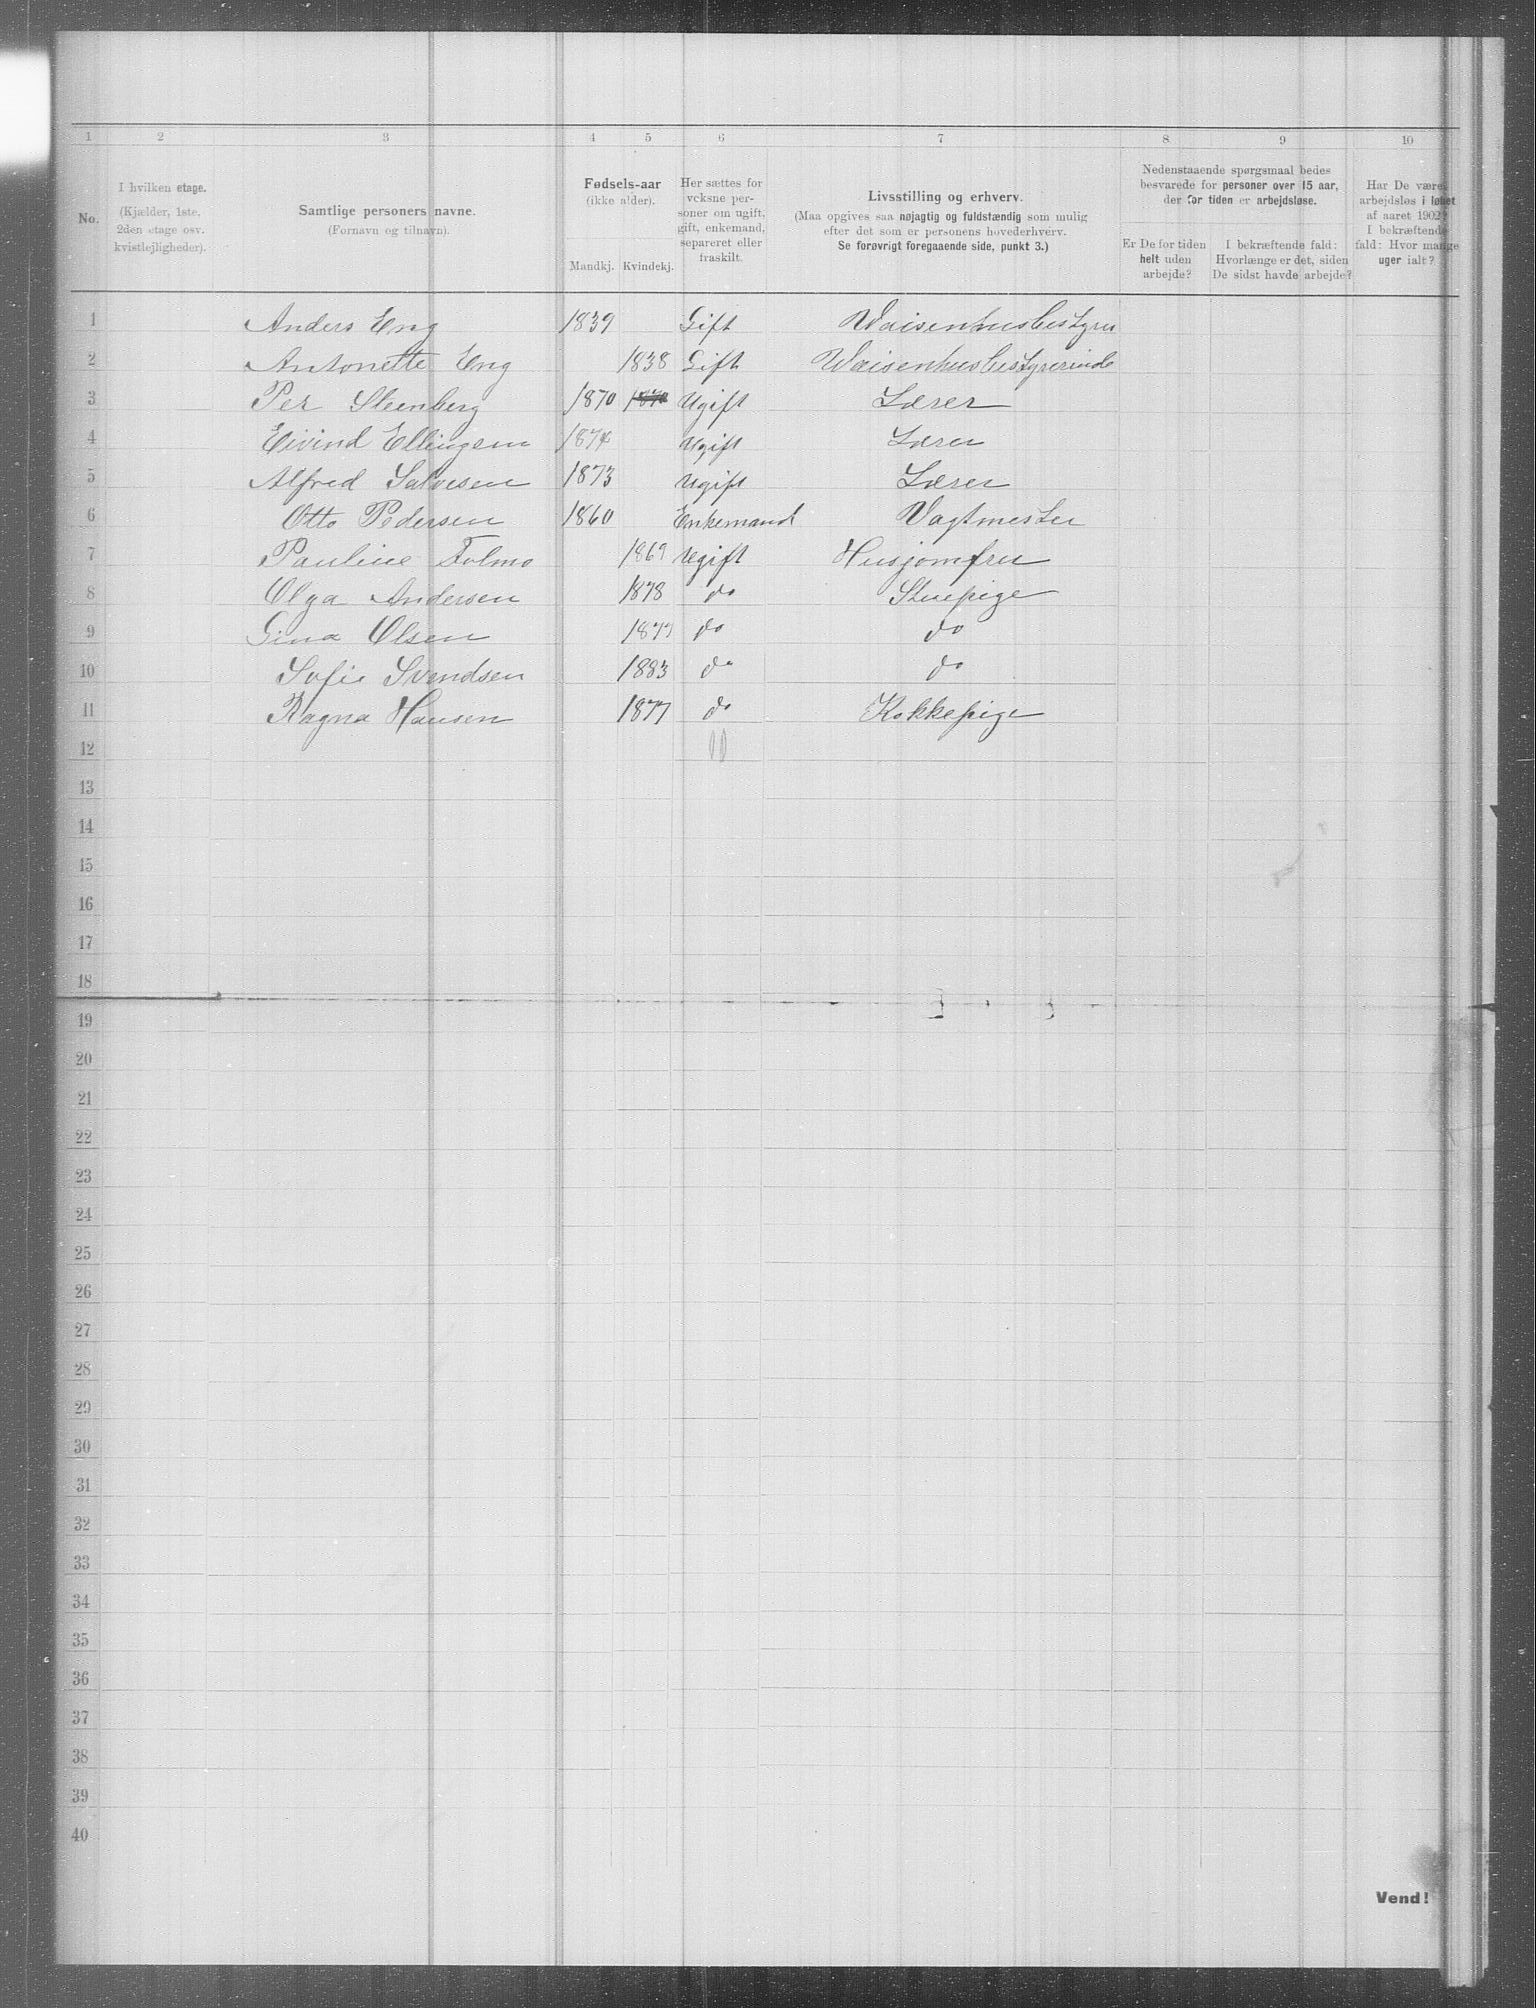 1 2 3 4 5 6 7 8 9 10
No.
I hvilken etage.
(Kjælder, 1ste,
2den etage osv.
kvistlejligheder).
Samtlige personers navne.
(Fornavn og tilnavn).
Fødsels-aar
(ikke alder).
Mandkj. Kvindekj.
Her sættes for
voksne per-
soner om ugift,
gift, enkemand,
separeret eller
fraskilt.
Livsstilling og erhverv.
(Maa opgives saa nøjagtig og fuldstændig som mulig
efter det som er personens hovederhverv.
Se forøvrigt foregaaende side, punkt 3.)
Nedenstaaende spørgsmaal bedes
besvarede for personer over 15 aar,
der for tiden er arbejdsløse.
Er De for tiden
helt uden
arbejde?
I bekræftende fald:
Hvorlænge er det, siden
De sidst havde arbejde?
Har De været
arbejdsløs i løbet
af aaret 1902?
I bekræftende
fald: Hvor mange
uger ialt?
1 Anders Eng 1839 Gift Waisenhusbestyrer
2 Antonette Eng 1838 Gift Waisenhusbestyrerinde
3 Per Steenberg 1870 1870 Ugift Lærer
4 Eivind Ellingsen 1874 Ugift Lærer
5 Alfred Salvesen 1873 Ugift Lærer
6 Otto Pedersen 1860 Enkemand Vagtmester
7 Pauline Folmo 1869 Ugift Husjomfru
8 Olga Andersen 1878 do Stuepige
9 Gina Olsen 1877 do do
10 Sofie Svendsen 1883 do do
11 Ragna Hansen 1877 do Kokkepige
12
13
14
15
16
17
18
19
20
21
22
23
24
25
26
27
28
29
30
31
32
33
34
35
36
37
38
39
40
Vend!